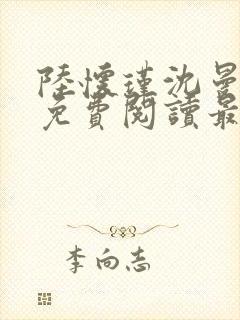 陸懷瑾沈曼
免費閱讀最
李向志